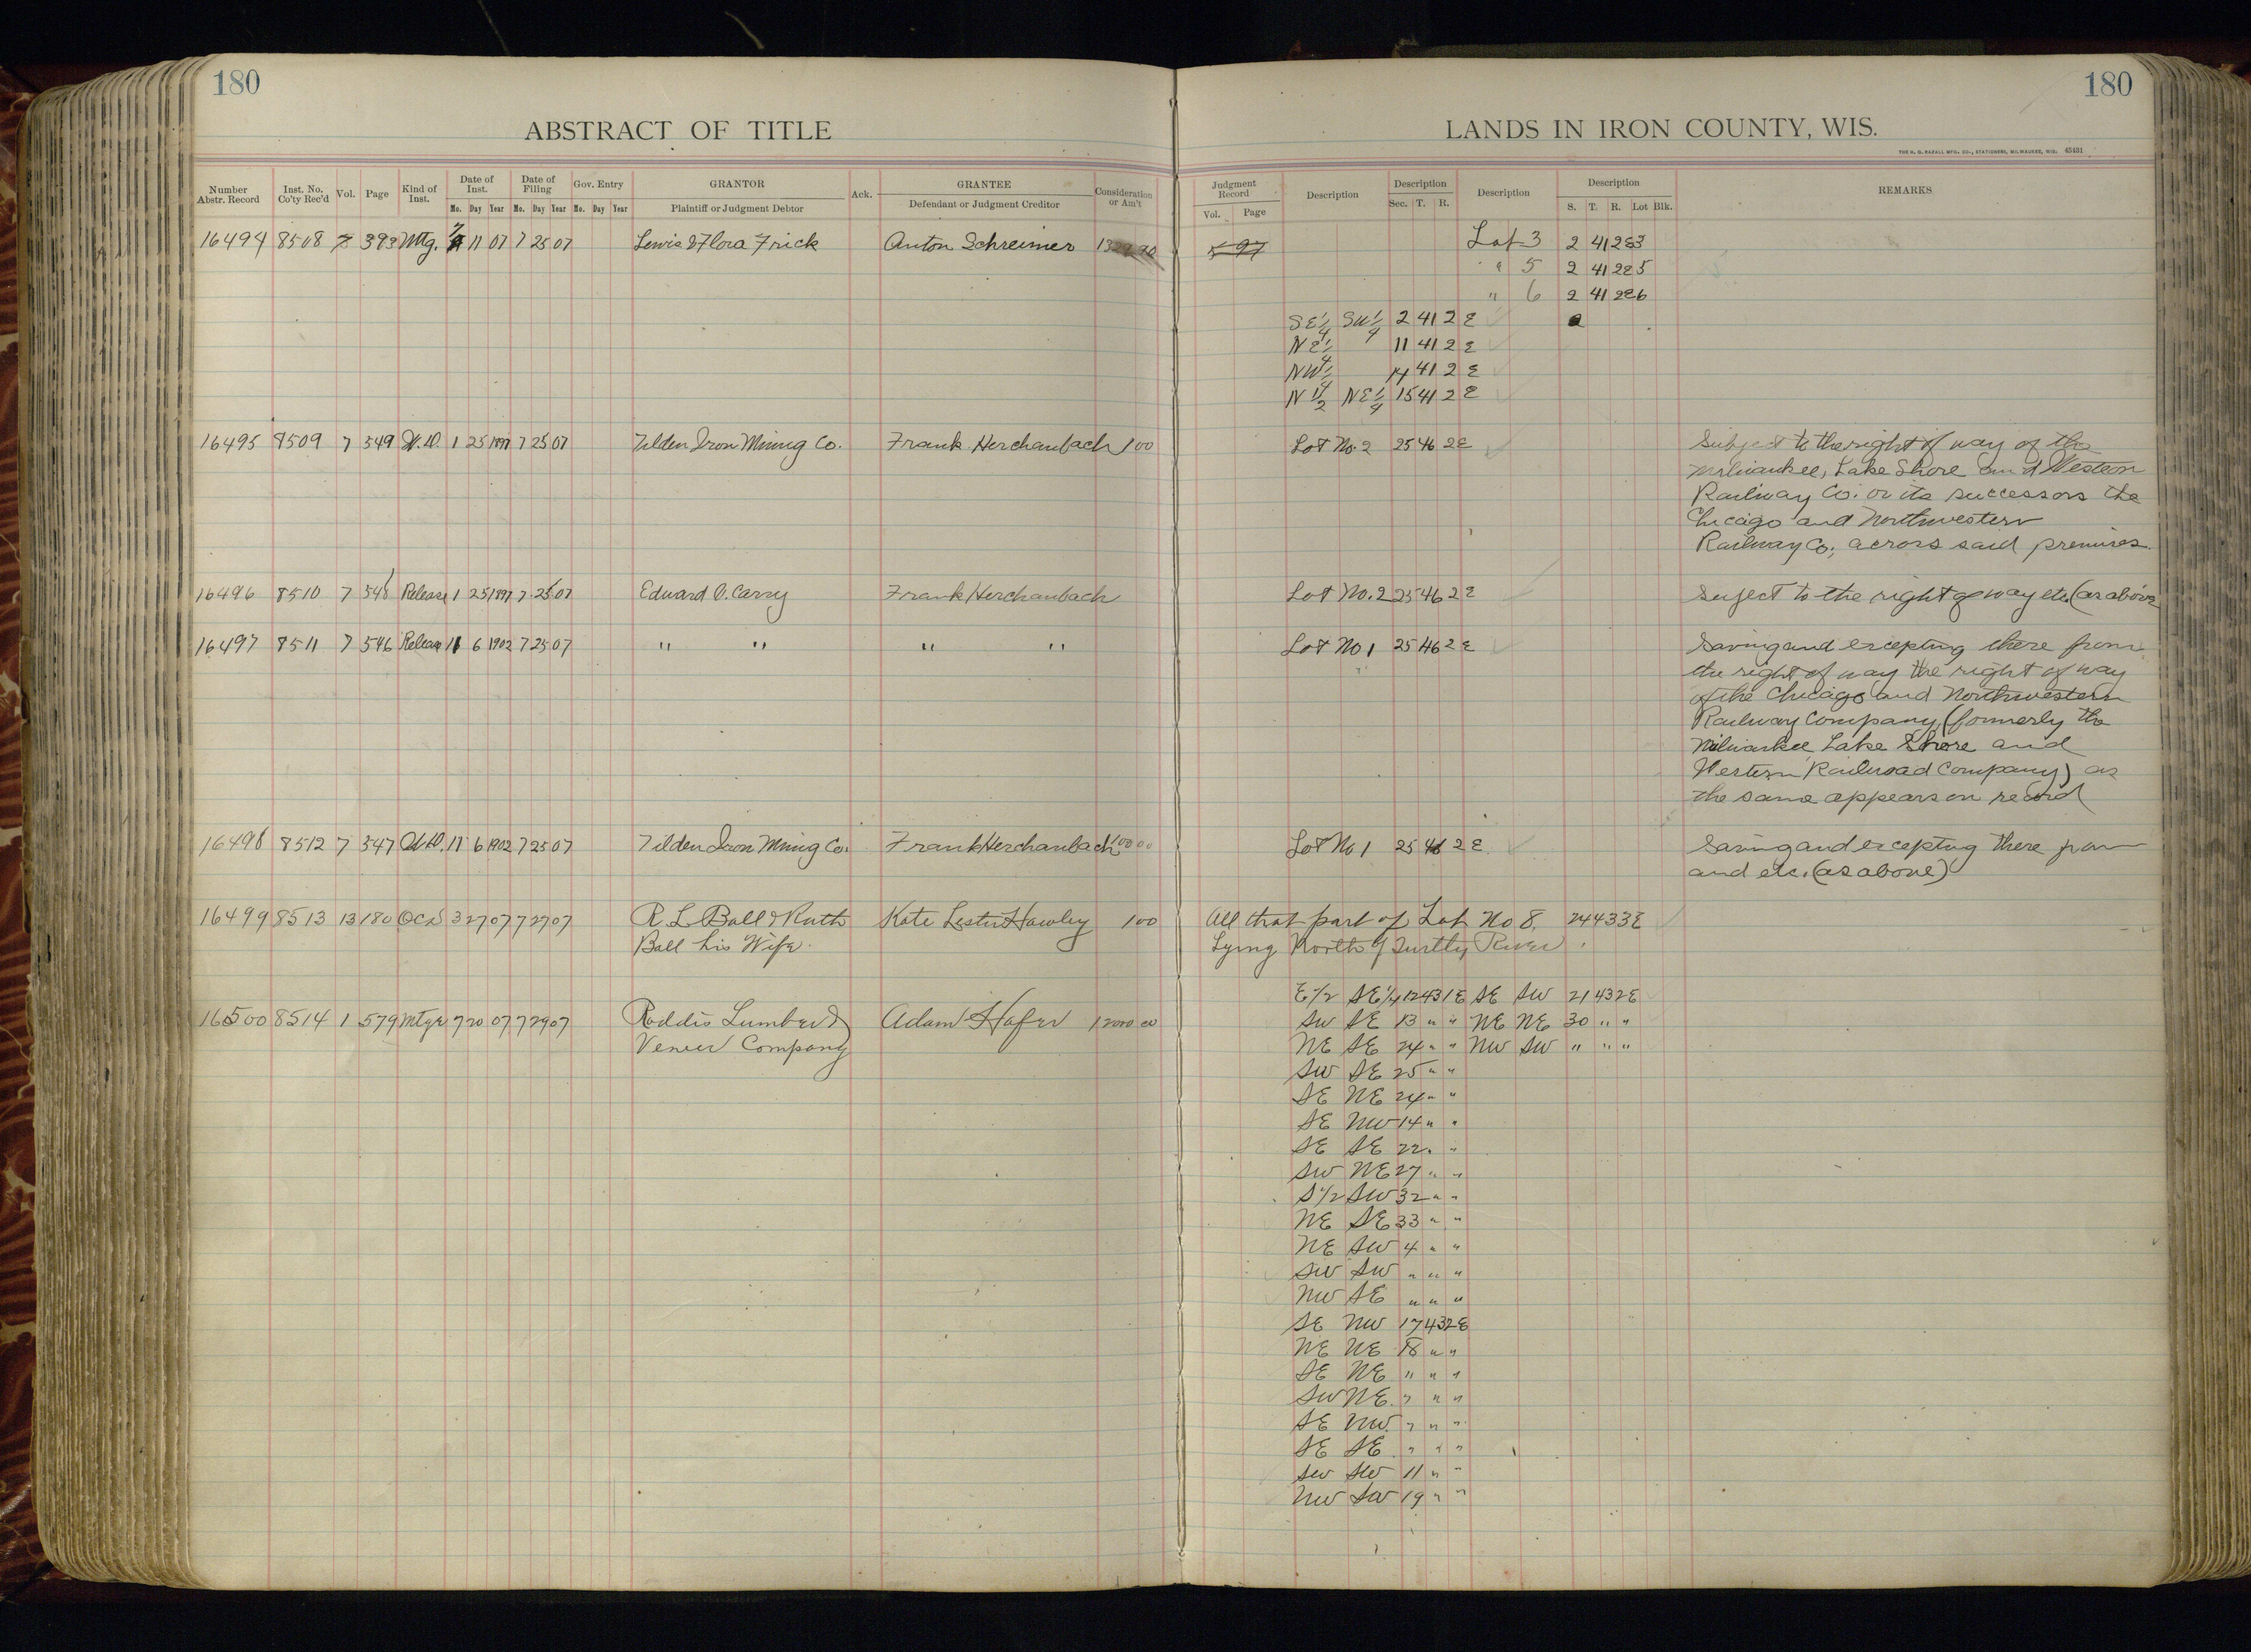 180
180
ABSTRACT OF TITLE
LANDS IN IRON COUNTY, WIS.
THE H. G. RAZALL MFG. CO., STATIONERS, MILWAUKEE, WIS. 45431
Number Abstr. Record Inst. No. Co'ty Rec'd Vol. Page Kind of Inst. Date of Inst. Mo. Day Year Date of Filing Mo. Day Year Gov. Entry Mo. Day Year GRANTOR Plaintiff or Judgment Debtor Ack. GRANTEE Defendant or Judgment Creditor Consideration or Am't
Judgment Record Vol. Page Description Description Sec. T. R. Description Description S. T. R. Lot Blk. REMARKS
16494 8508 7 393 Mtg. 7 11 07 7 25 07 Lewis & Flora Frick Anton Schreiner 1329.90 Lot 3 2 41 2E 3
" 5 2 41 2E 5
" 6 2 41 2E 6
SE 1/4 SW 1/4 2 41 2 E
NE 1/4 11 41 2 E
NW 1/4 14 41 2 E
N 1/2 NE 1/4 15 41 2 E
16495 8509 7 549 W.D. 1 25 1897 7 25 07 Tilden Iron Mining Co. Frank Herchanbach 100 Lot No. 2 25 46 2E Subject to the right of way of the
Milwaukee, Lake Shore and Western
Railway Co. or its successors the
Chicago and Northwestern
Railway Co., across said premises.
16496 8510 7 548 Release 1 25 1897 7 25 07 Edward O. Carry Frank Herchanbach Lot No. 2 25 46 2E Suject to the right of way etc. (as above
16497 8511 7 546 Release 11 6 1902 7 25 07 " " " " Lot No 1 25 46 2 E Saving and excepting there from
the right of way the right of way
of the Chicago and Northwestern
Railway Company, (formerly the
Milwaukee Lake Shore and
Western Railroad Company) as
the same appears on record
16498 8512 7 547 11 6 1902 7 25 07 Tilden Iron Mining Co. Frank Herchanbach Lot No 1 25 46 2 E Saving and excepting there from
and etc. (as above)
16499 8513 13 180 QCD 3 27 07 7 27 07 R. L. Ball & Ruth Kate Lester Hawley 100 All that part of Lot No 8. 24 43 3E
Ball his Wife. Lying North of Turtle River
E 1/2 SE 1/4 12 43 1E SE SW 21 43 2E
16500 8514 1 579 Mtge 7 20 07 7 29 07 Roddis Lumber & Adam Hafer 12000.00 SW SE 13 " " NE NE 30 " "
Veneer Company NE SE 24 " " NW SW " " "
SW SE 25 " "
SE NE 24 " "
SE NW 14 " "
SE SE 22 " "
SW NE 27 " "
S 1/2 SW 32 " "
NE SE 33 " "
NE SW 4 " "
SW SW " " "
NW SE " " "
SE NW 17 43 2E
NE NE 18 " "
SE NE " " "
SW NE " " "
SE NW " " "
SE SE " " "
SW SW 11 " "
NW SW 19 " "